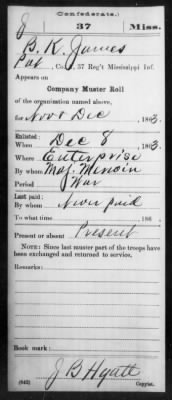 (Confederate.)
J 37 Miss.
B. K. James
Pvt, Co. , 37 Reg't Mississippi Inf.
Appears on
Company Muster Roll
of the organization named above,
for Nov & Dec , 1863.
Enlisted:
When Dec 8 , 1863.
Where Enterprise
By whom Maj.
Period War
Last paid:
By whom Never paid
To what time , 186 .
Present or absent Present
NOTE: Since last muster part of the troops have
been exchanged and returned to service.
Remarks:
Book mark:
J B Hyatt
(642) Copyist.